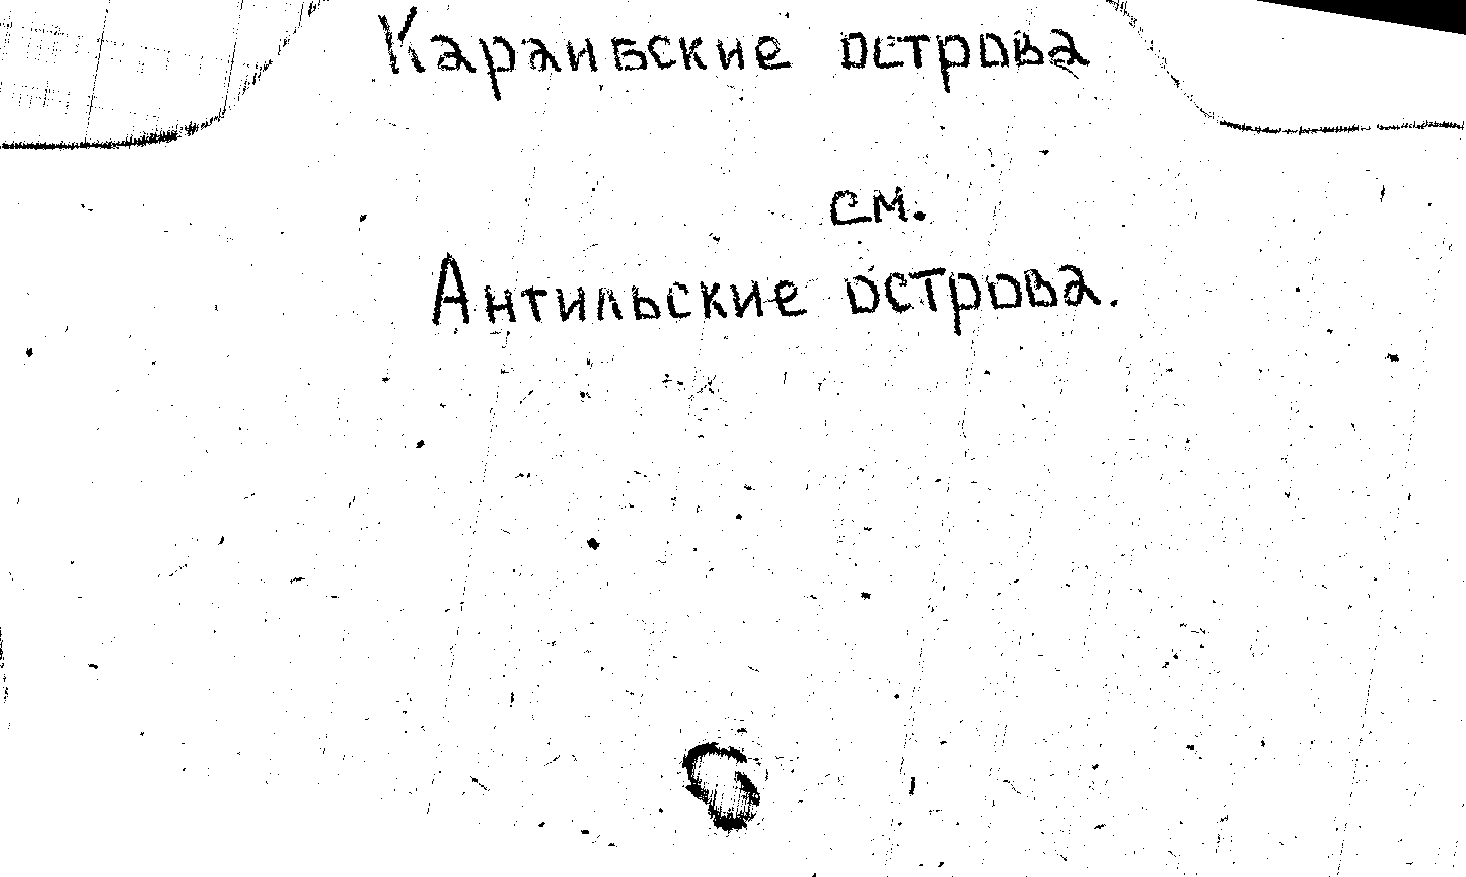 Караибские острова
см.
Антильские острова.